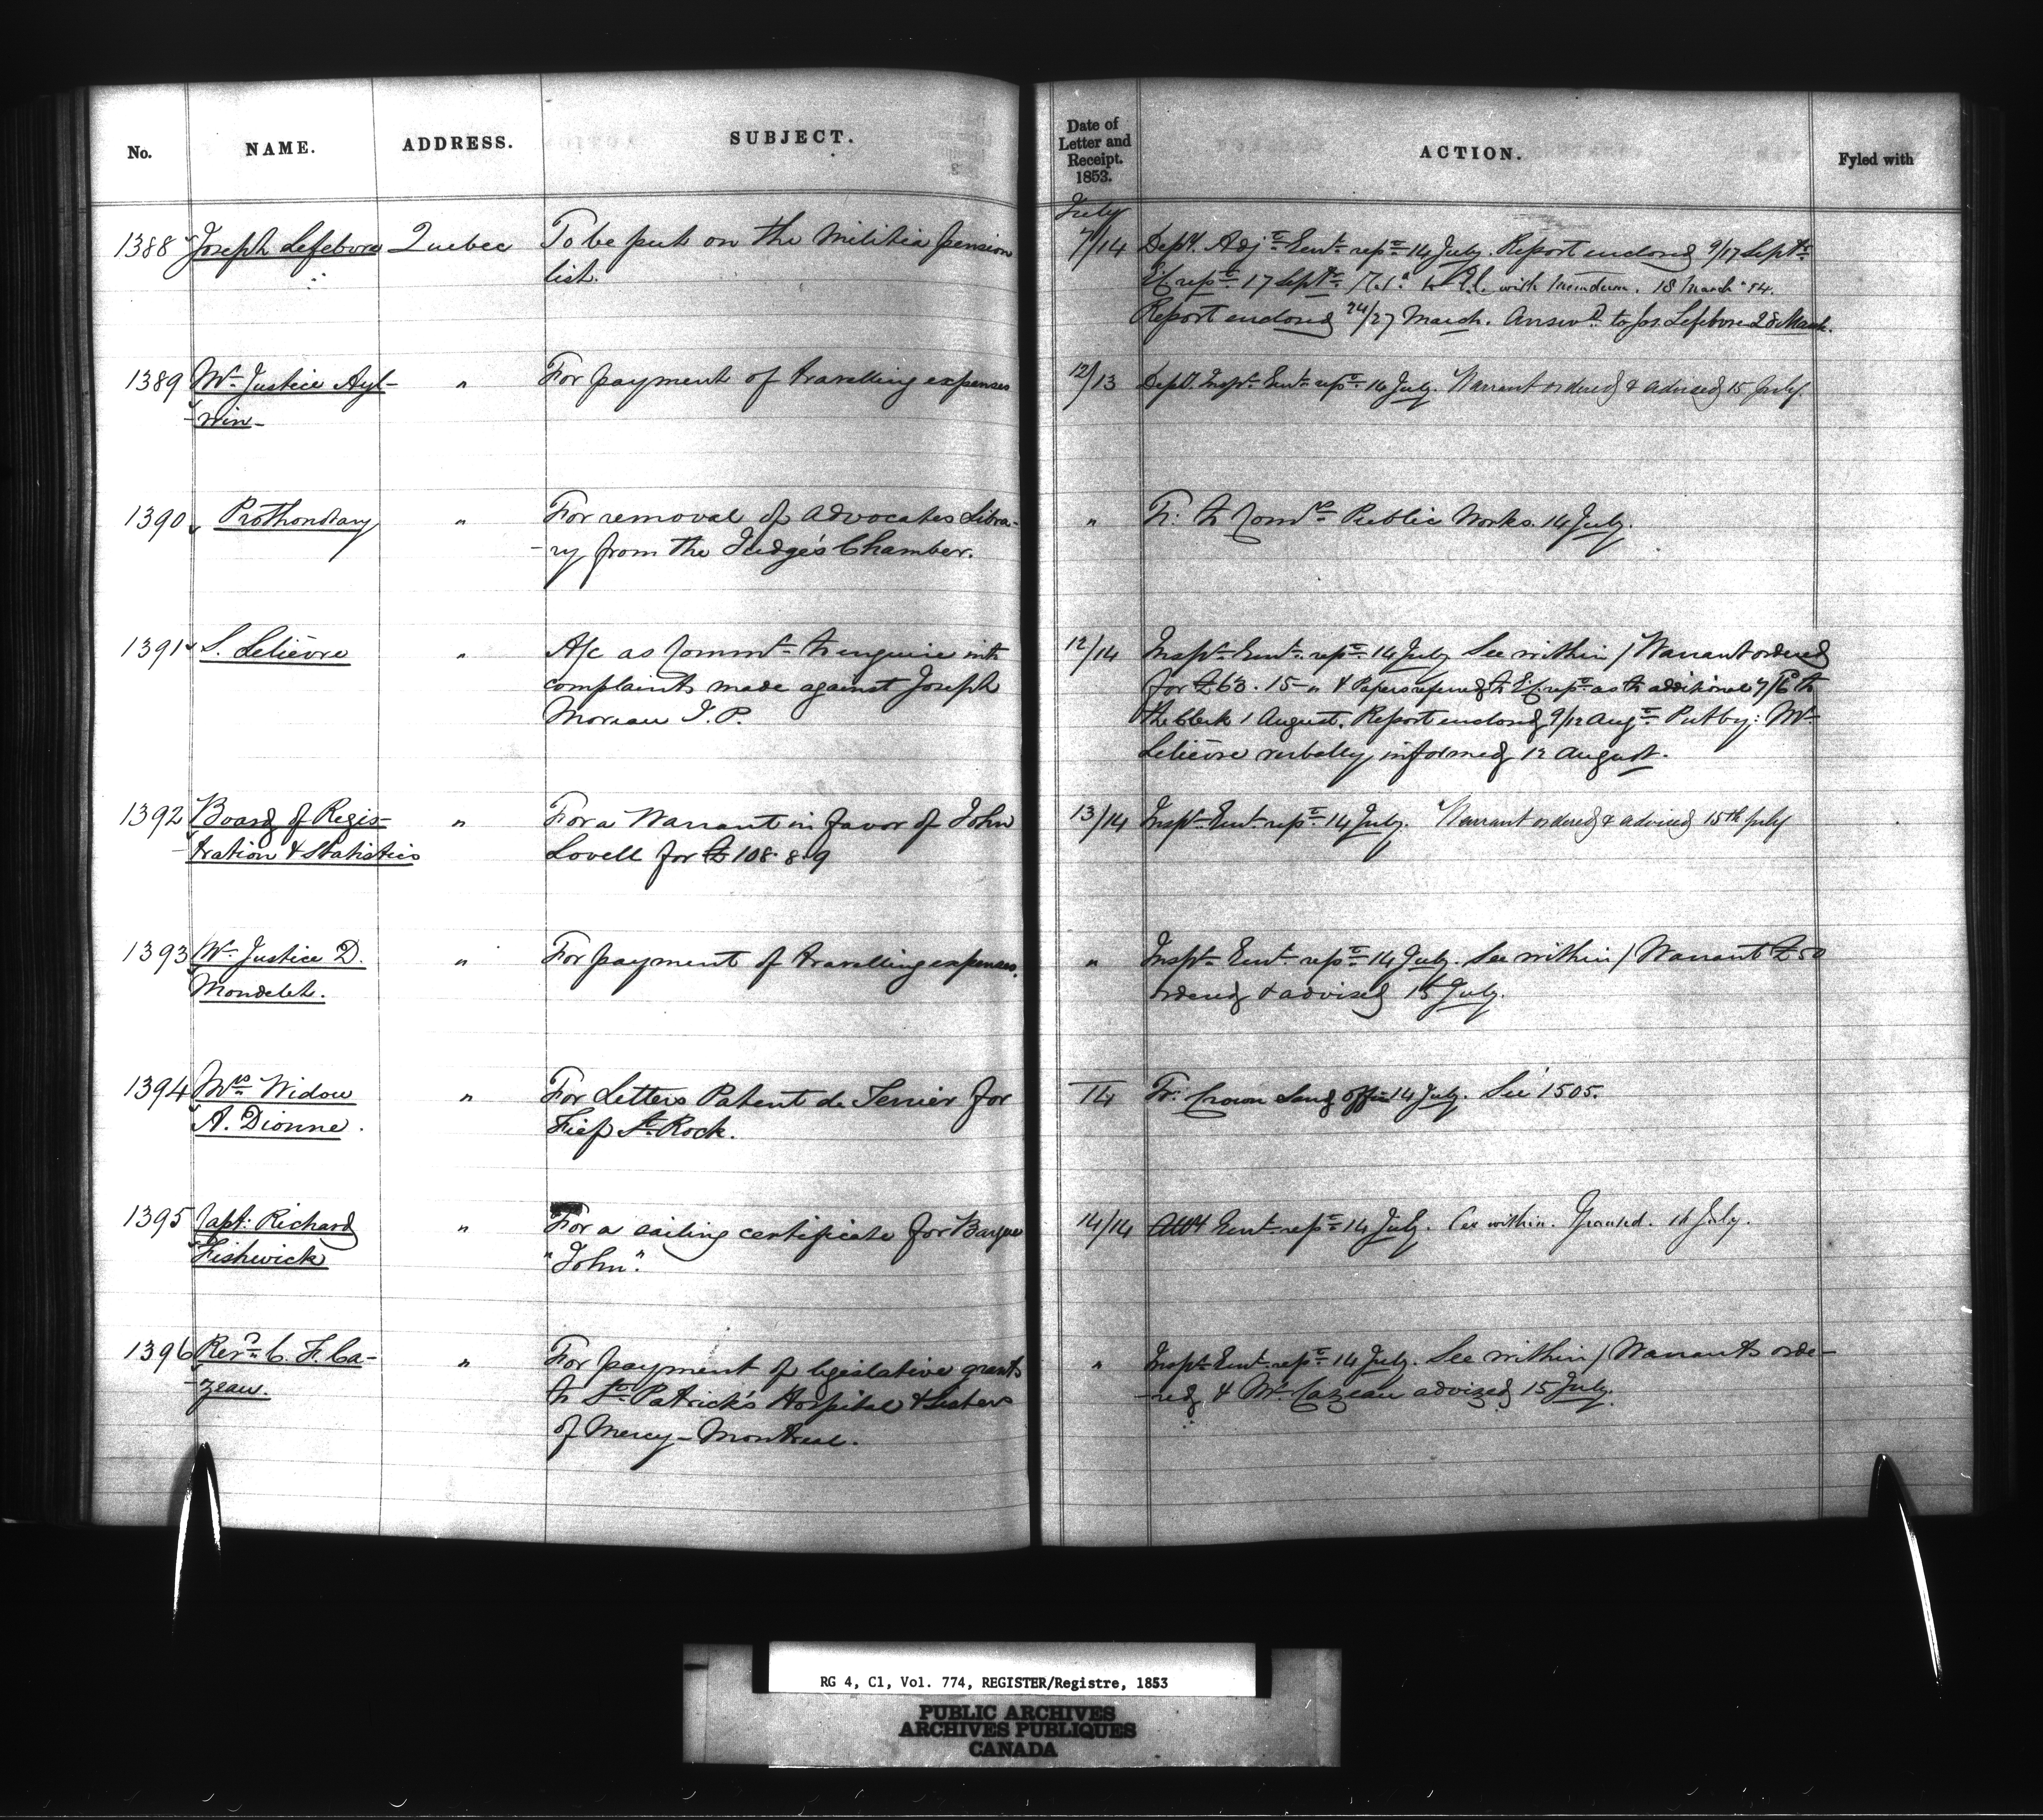 No. NAME. ADDRESS. SUBJECT. Date of Letter and Receipt. 1853. ACTION. Fyled with
July
1388 Joseph Lefebvre Quebec To be put on the Militia pension 7/14 Depy. Adjt. Genl. rept. 14 July. Report enclosed 9/17 Septr.
list. Ex. rept. 17 Septr. with 18 March 54.
Report enclosed 24/27 March. Answd. to Jos. Lefebvre 28 March.
1389 Mr. Justice Ayl- " For payment of travelling expenses 12/13 Depy. Inspr. Genl. rept. 14 July. Warrant ordered & advised 15 July.
-win-
1390 Prothonotary " For removal of Advocates Libra- " Fr: to Comrs. Public Works. 14 July.
-ry from the Judge's Chamber.
1391 S. Lelièvre " A/c as Commr. to enquire into 12/14 Inspr. Genl. rept. 14 July See within / Warrant ordered
complaints made against Joseph for £63. 15 - " & Papers referred to Ex. rept. as to additional 7/6 to
Moreau J. P. the Clerk 1 August. Report enclosed 9/12 Augt. Put by: Mr.
Lelièvre verbally informed 12 August.
1392 Board of Regis- " For a Warrant in favor of John 13/14 Inspr. Genl. rept. 14 July. Warrant ordered & advised 15th July
-tration & Statistics Lovell for £108. 8. 9
1393 Mr. Justice D. " For payment of travelling expenses. " Inspr. Genl. rept. 14 July. See within / Warrant £50
Mondelet. ordered & advised 15 July.
1394 Mrs. Widow " For Letters Patent de Terrier for 14 Fr: Crown Land Office 14 July. See 1505.
A. Dionne. Fief St. Rock.
1395 Capt: Richard " For a sailing certificate for Barque 14/14 Genl. rept. 14 July. See within. Granted. 14 July.
Fishwick "John".
1396 Revd. C. F. Ca- " For payment of legislative grants " Inspr. Genl. rept. 14 July. See within / Warrants orde-
-zeau. to St. Patrick's Hospital & Sisters -red & Mr. Cazeau advized 15 July.
of Mercy - Montreal.
RG 4, C1, Vol. 774, REGISTER/Registre, 1853
PUBLIC ARCHIVES
ARCHIVES PUBLIQUES
CANADA